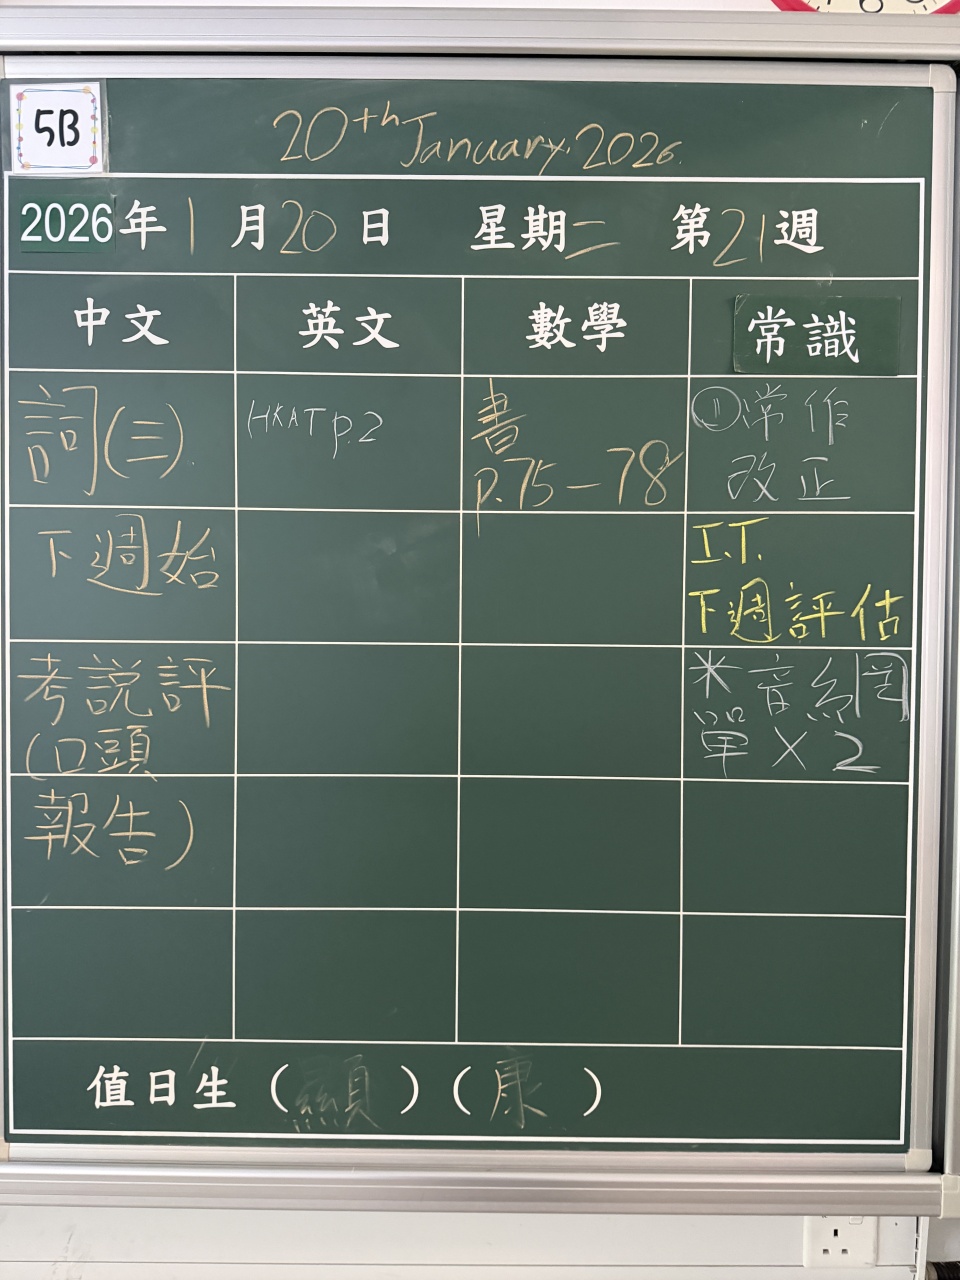 5B
20th January, 2026.
2026年1月20日 星期二 第21週
中文 英文 數學 常識
詞(三).
下週始
考説評
(口頭
報告)
HKAT p.2
書
p.75-78
①常作
改正
I.T.
下週評估
米音網
單×2
值日生（顯）（康）